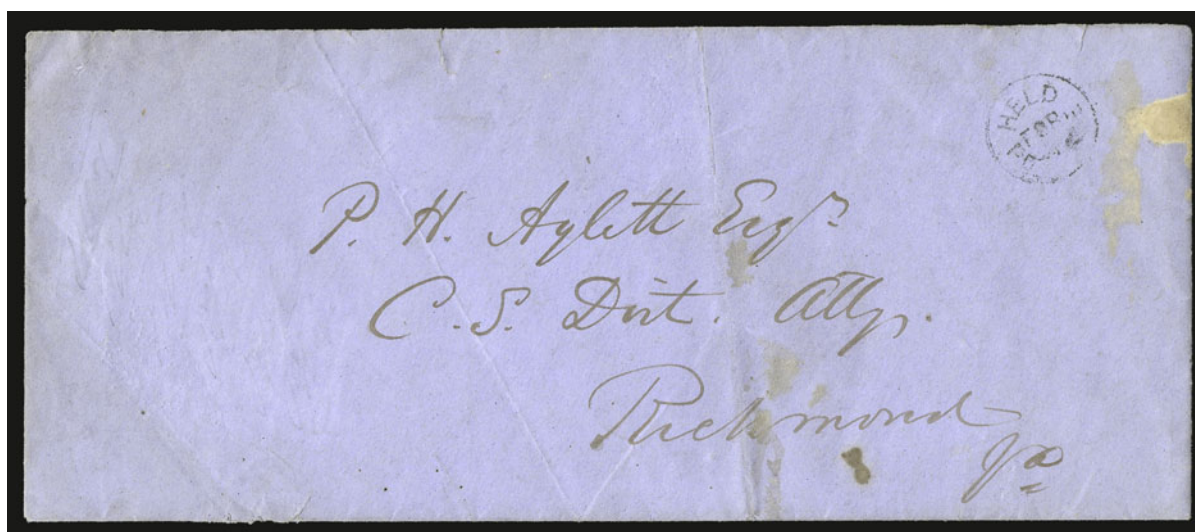 HELD
FOR
P. H. Aylett Esqr.
C. S. Dist. Atty.
Richmond
Va